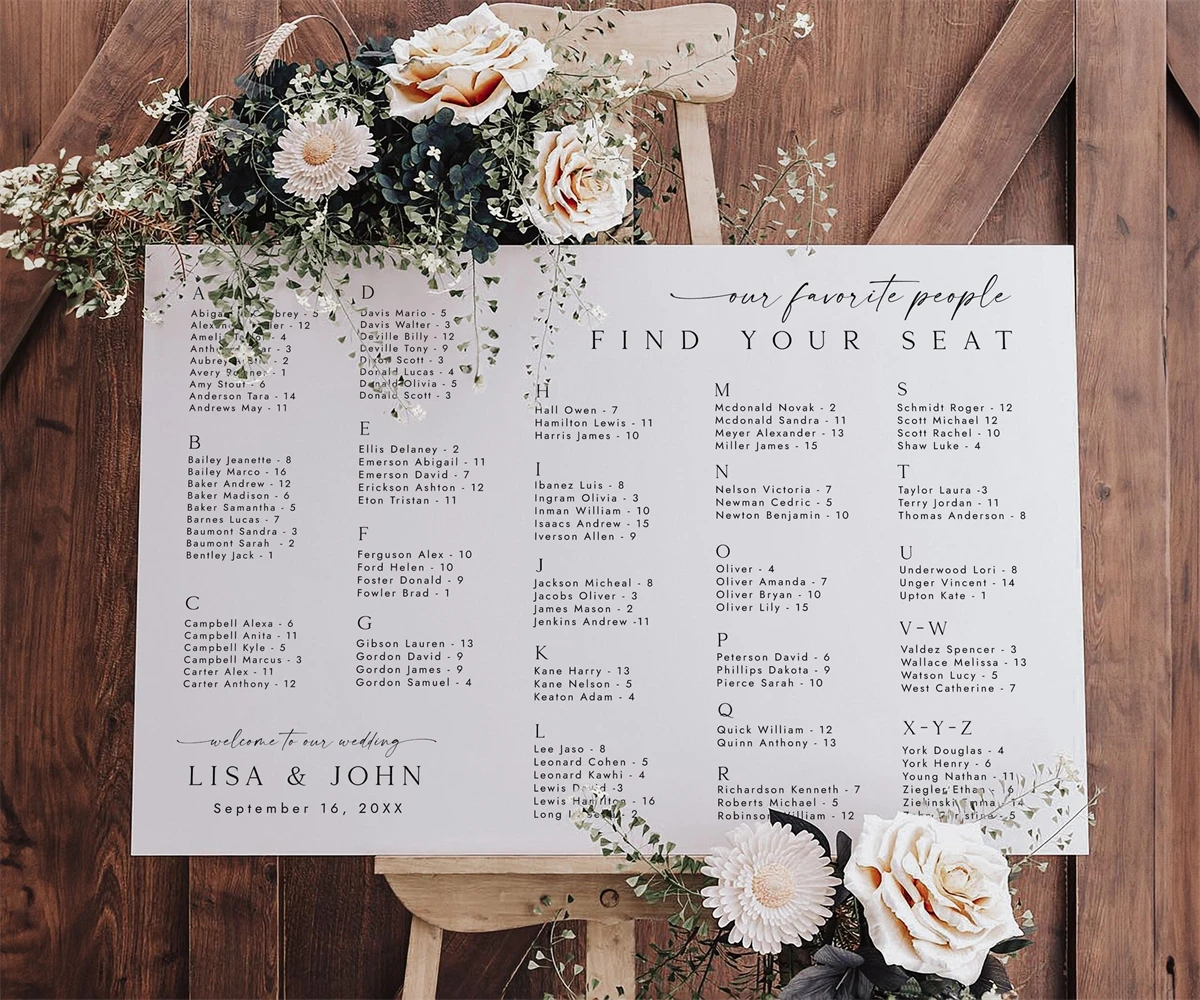 our favorite people
FIND YOUR SEAT
A
- 5
- 12
- 4
- 3
- 2
Avery - 1
Amy Stout - 6
Anderson Tara - 14
Andrews May - 11
B
Bailey Jeanette - 8
Bailey Marco - 16
Baker Andrew - 12
Baker Madison - 6
Baker Samantha - 5
Barnes Lucas - 7
Baumont Sandra - 3
Baumont Sarah - 2
Bentley Jack - 1
C
Campbell Alexa - 6
Campbell Anita - 11
Campbell Kyle - 5
Campbell Marcus - 3
Carter Alex - 11
Carter Anthony - 12
D
Davis Mario - 5
Davis Walter - 3
Deville Billy - 12
Deville Tony - 9
Dixon Scott - 3
Donald Lucas - 4
Donald Olivia - 5
Donald Scott - 3
E
Ellis Delaney - 2
Emerson Abigail - 11
Emerson David - 7
Erickson Ashton - 12
Eton Tristan - 11
F
Ferguson Alex - 10
Ford Helen - 10
Foster Donald - 9
Fowler Brad - 1
G
Gibson Lauren - 13
Gordon David - 9
Gordon James - 9
Gordon Samuel - 4
H
Hall Owen - 7
Hamilton Lewis - 11
Harris James - 10
I
Ibanez Luis - 8
Ingram Olivia - 3
Inman William - 10
Isaacs Andrew - 15
Iverson Allen - 9
J
Jackson Micheal - 8
Jacobs Oliver - 3
James Mason - 2
Jenkins Andrew -11
K
Kane Harry - 13
Kane Nelson - 5
Keaton Adam - 4
L
Lee Jaso - 8
Leonard Cohen - 5
Leonard Kawhi - 4
Lewis David -3
Lewis Hamilton - 16
Long - 2
M
Mcdonald Novak - 2
Mcdonald Sandra - 11
Meyer Alexander - 13
Miller James - 15
N
Nelson Victoria - 7
Newman Cedric - 5
Newton Benjamin - 10
O
Oliver - 4
Oliver Amanda - 7
Oliver Bryan - 10
Oliver Lily - 15
P
Peterson David - 6
Phillips Dakota - 9
Pierce Sarah - 10
Q
Quick William - 12
Quinn Anthony - 13
R
Richardson Kenneth - 7
Roberts Michael - 5
Robinson William - 12
S
Schmidt Roger - 12
Scott Michael 12
Scott Rachel - 10
Shaw Luke - 4
T
Taylor Laura -3
Terry Jordan - 11
Thomas Anderson - 8
U
Underwood Lori - 8
Unger Vincent - 14
Upton Kate - 1
V-W
Valdez Spencer - 3
Wallace Melissa - 13
Watson Lucy - 5
West Catherine - 7
X-Y-Z
York Douglas - 4
York Henry - 6
Young Nathan - 11
Ziegler Ethan - 6
Zielinski - 14
- 5
welcome to our wedding
LISA & JOHN
September 16, 20XX